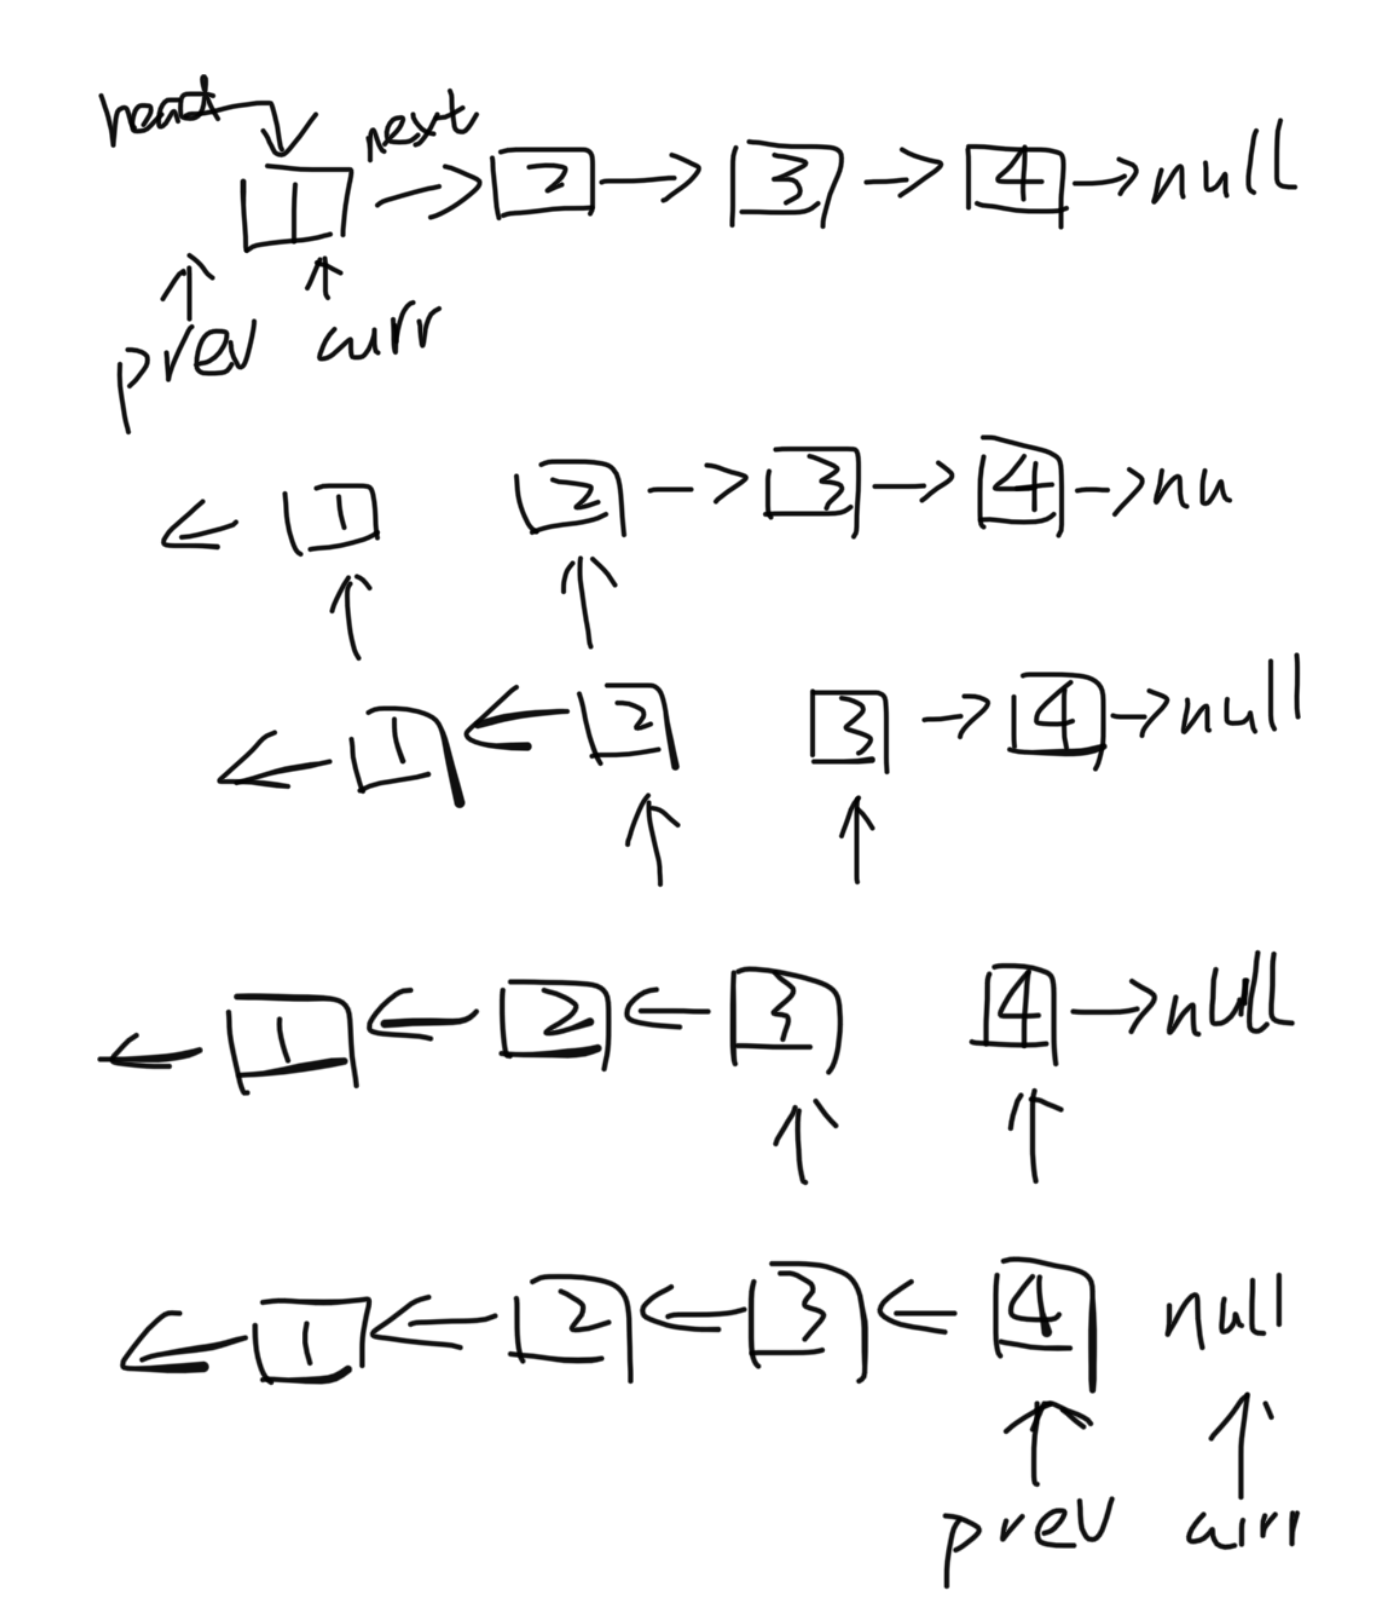 head next
1 2 3 4 null
prev curr
1 2 3 4 nu
1 2 3 4 null
1 2 3 4 null
1 2 3 4 null
prev curr